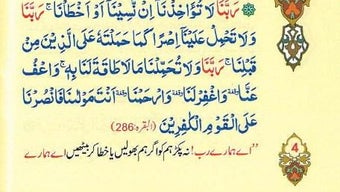 رَبَّنَا لَا تُؤَاخِذْنَا اِنْ نَّسِيْنَا اَوْ اَخْطَاْنَا ۚ رَبَّنَا
وَلَا تَحْمِلْ عَلَيْنَا اِصْرًا كَمَا حَمَلْتَهٗ عَلَى الَّذِيْنَ مِنْ
قَبْلِنَا ۚ رَبَّنَا وَلَا تُحَمِّلْنَا مَا لَا طَاقَةَ لَنَا بِهٖ ۚ وَاعْفُ
عَنَّا ۥ وَاغْفِرْ لَنَا ۥ وَارْحَمْنَا ۥ اَنْتَ مَوْلٰىنَا فَانْصُرْنَا
عَلَى الْقَوْمِ الْكٰفِرِيْنَ (البقرہ:286)
"اے ہمارے رب! نہ پکڑ ہم کو اگر ہم بھولیں یا خطا کر بیٹھیں اے ہمارے
4